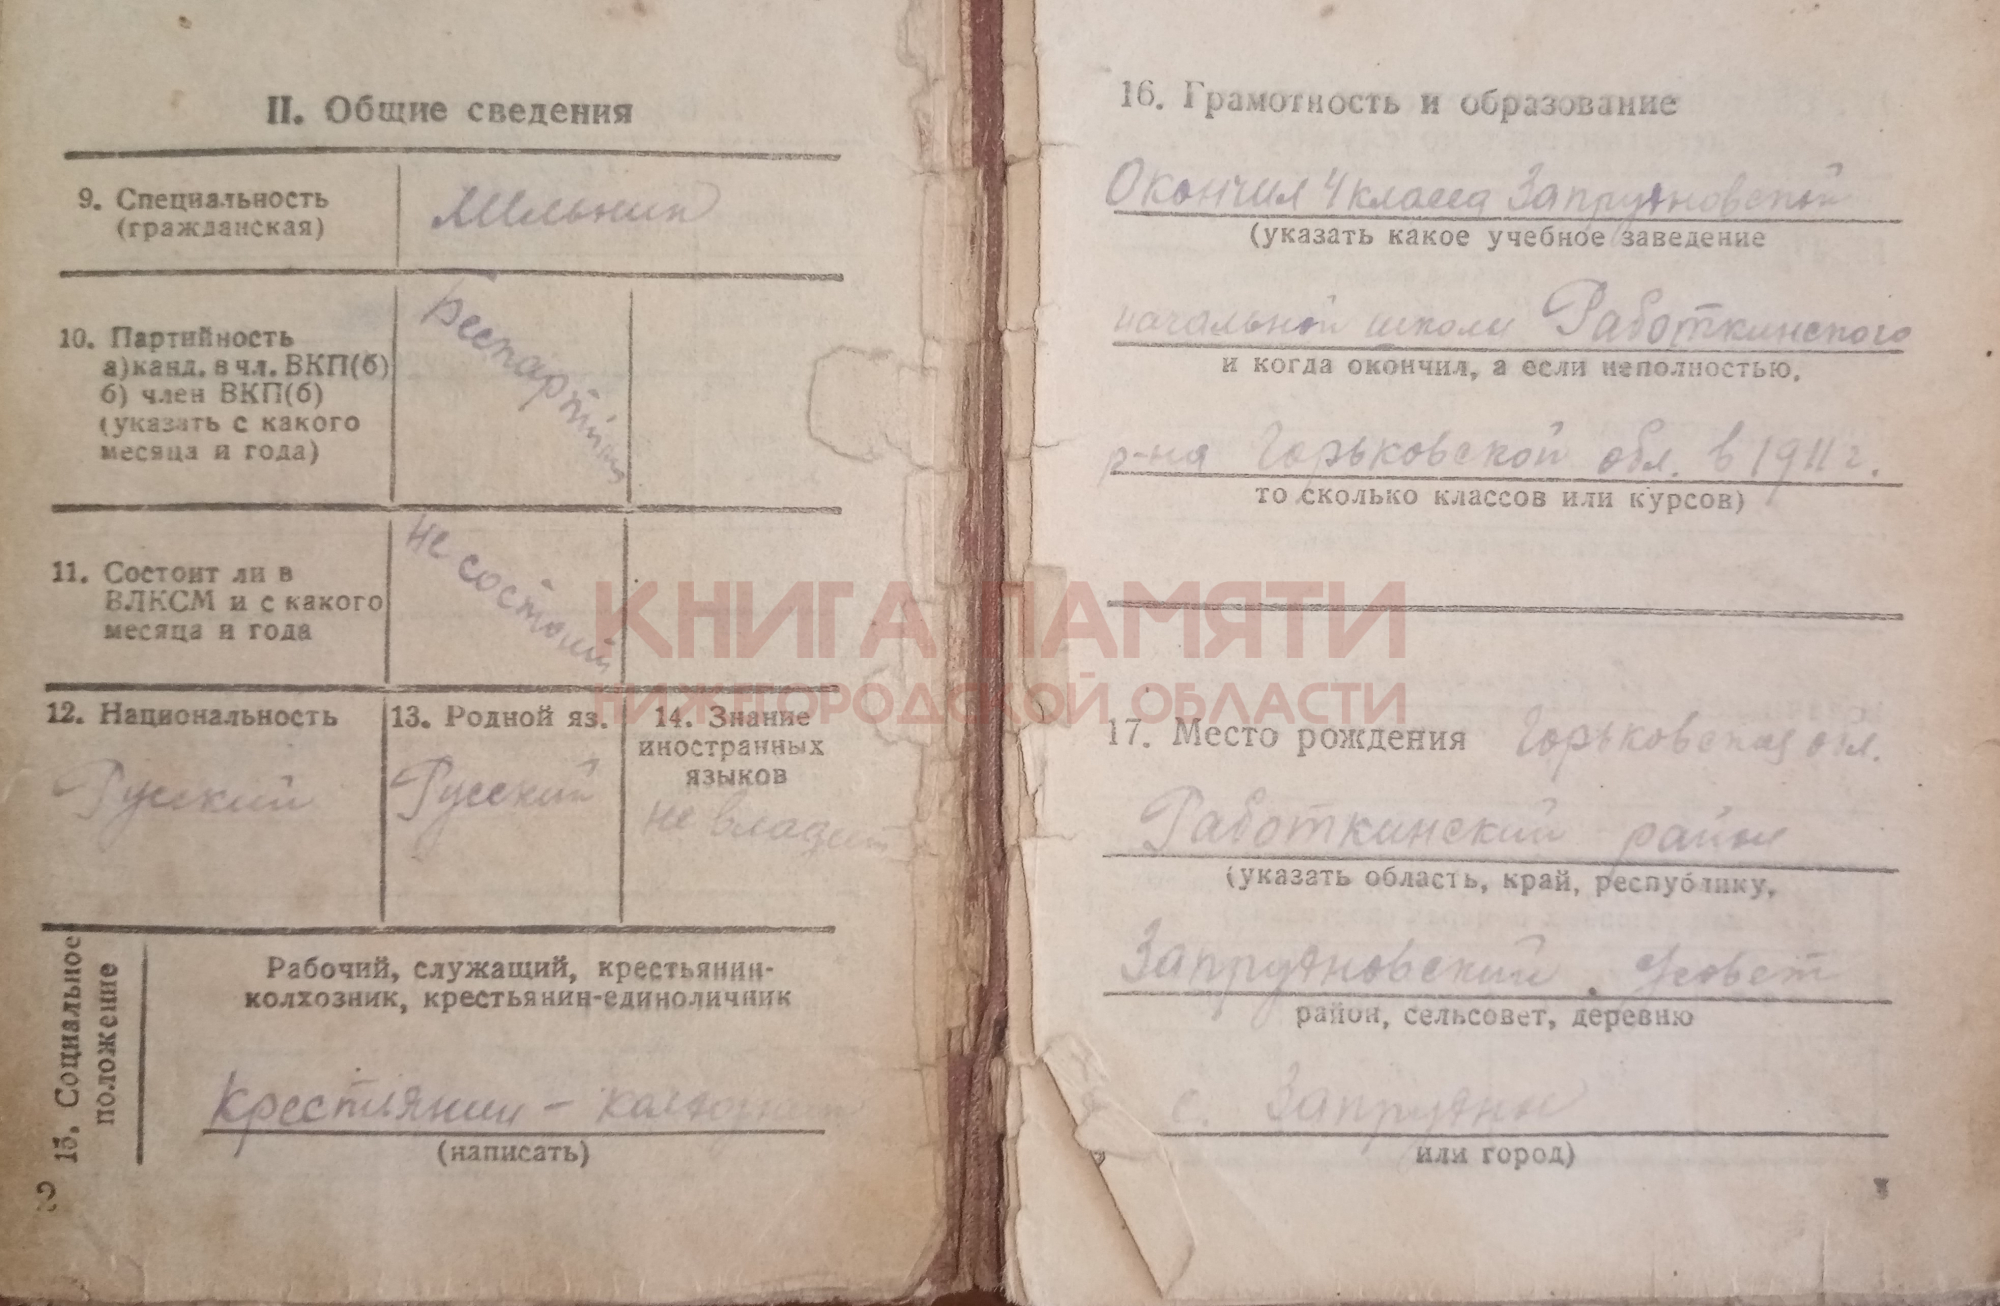 II. Общие сведения
9. Специальность
(гражданская)
Мельник
10. Партийность
а) канд. в чл. ВКП(б)
б) член ВКП(б)
(указать с какого
месяца и года)
Беспартийный
11. Состоит ли в
ВЛКСМ и с какого
месяца и года
не состоит
12. Национальность
Русский
13. Родной яз.
Русский
14. Знание
иностранных
языков
не владеет
15. Социальное
положение
Рабочий, служащий, крестьянин-
колхозник, крестьянин-единоличник
крестьянин - колхозник
(написать)
2
16. Грамотность и образование
Окончил 4 класса Запрудновской
(указать какое учебное заведение
начальной школы Работкинского
и когда окончил, а если неполностью,
р-на Горьковской обл. в 1911 г.
то сколько классов или курсов)
17. Место рождения Горьковская обл.
Работкинский район
(указать область, край, республику,
Запрудновский
район, сельсовет, деревню
с. Запрудное
или город)
КНИГА ПАМЯТИ
НИЖЕГОРОДСКОЙ ОБЛАСТИ